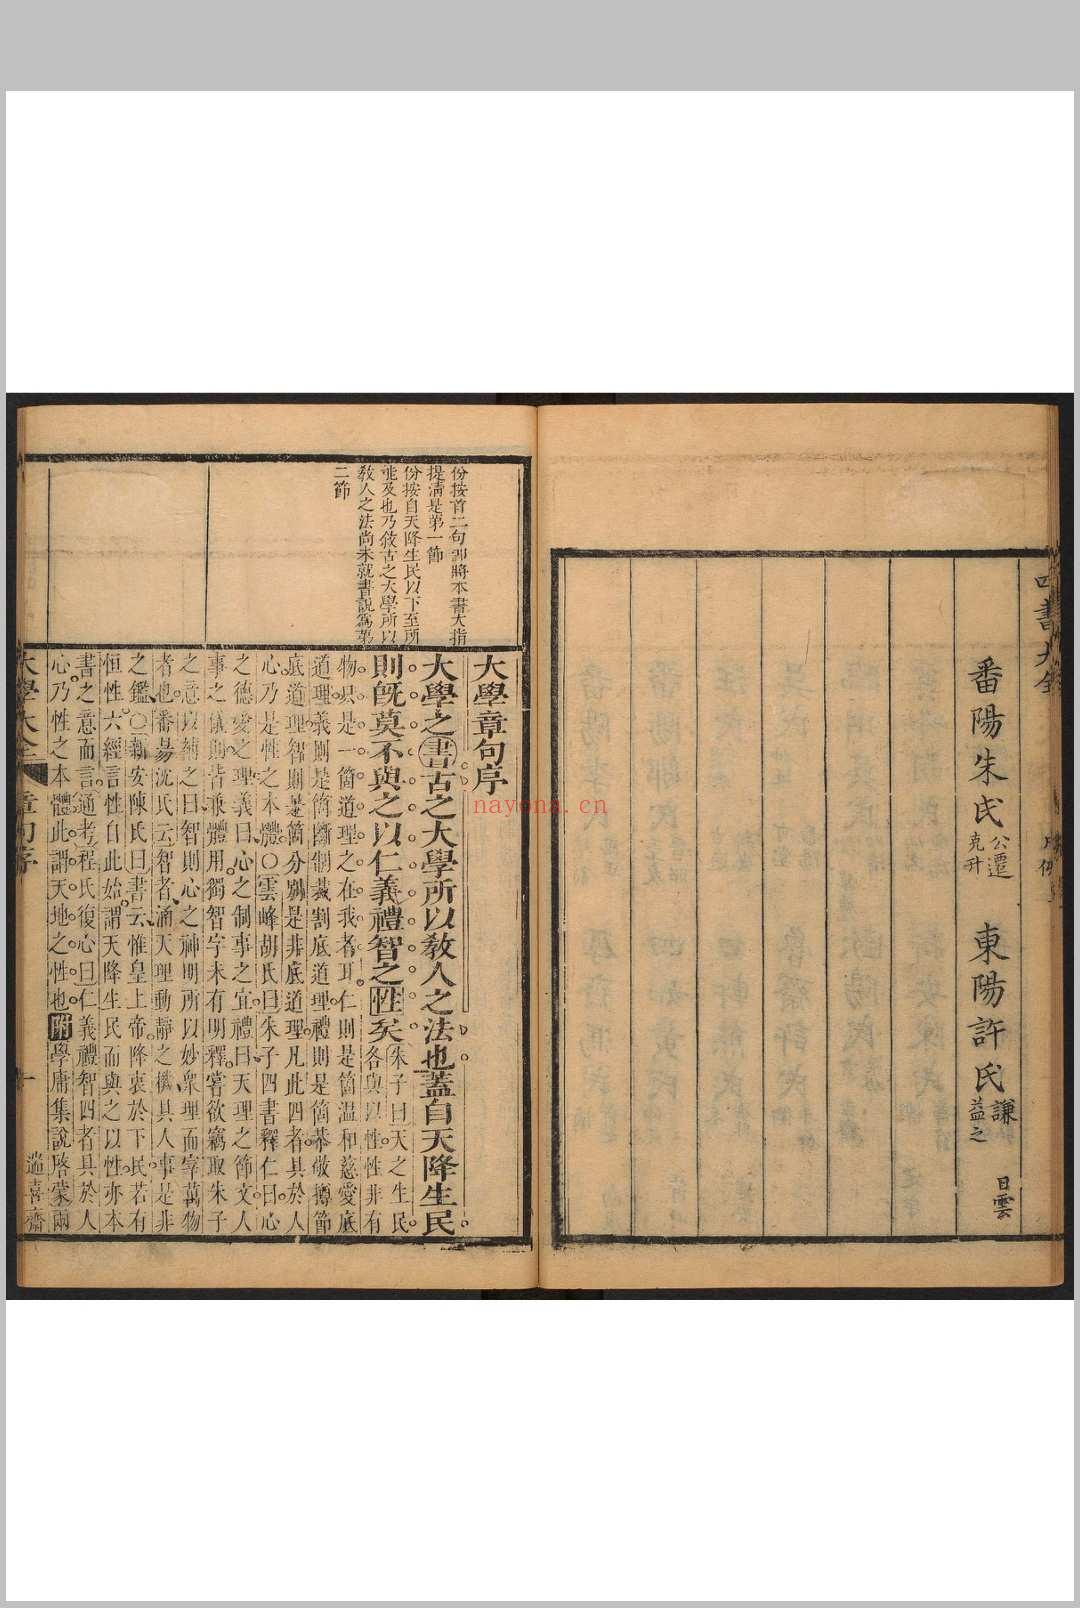 四書大全
番陽朱氏公遷克升
東陽許氏謙益之
日雲
份按首二句卽將本書大指
提淸是第一節
份按自天降生民以下至所
能及也乃敘古之大學所以
敎人之法尚未就書説爲第
二節
大學章句序
大學之書古之大學所以敎人之法也蓋自天降生民
則旣莫不與之以仁義禮智之性矣
朱子曰天之生民
各與以性性非有
物只是一箇道理之在我者耳仁則是箇温和慈愛底
道理義則是箇斷制裁割底道理禮則是箇恭敬撙節
底道理智則是箇分别是非底道理凡此四者具於人
心乃是性之本體○雲峰胡氏曰朱子四書釋仁曰心
之德愛之理義曰心之制事之宜禮曰天理之節文人
事之儀則皆兼體用獨智字未有明釋嘗欲竊取朱子
之意以補之曰智則心之神明所以妙衆理而宰萬物
者也番昜沈氏云智者涵天理動靜之機具人事是非
之鑑○新安陳氏曰書云惟皇上帝降衷於下民若有
恒性六經言性自此始謂天降生民而與之以性亦本
書之意而言通考程氏復心曰仁義禮智四者具於人
心乃性之本體此謂天地之性也附學庸集說啓蒙兩
大學大全
章句序
一
遄喜齋
nayona.cn